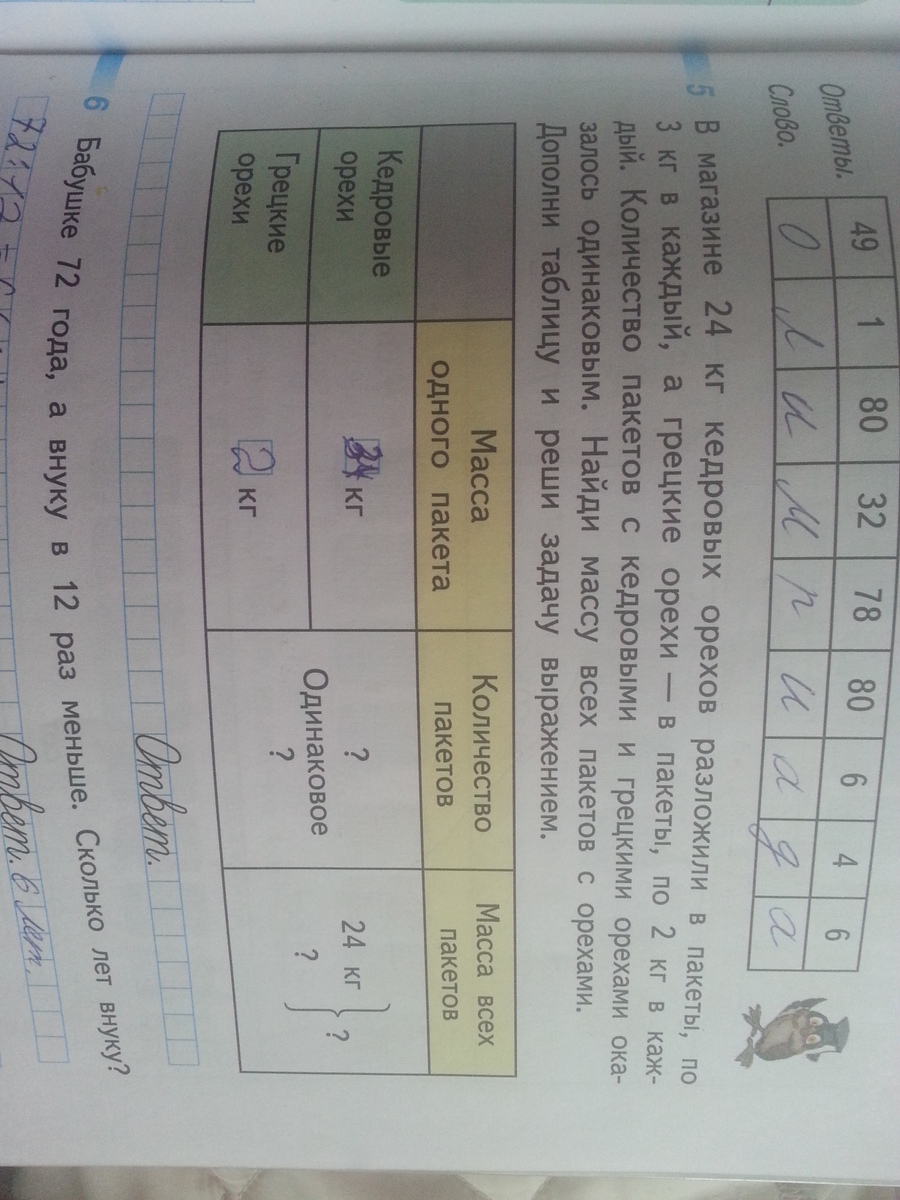 Ответы. 49 1 80 32 78 80 6 4 6
Слово. О л и м п и а д а
5 В магазине 24 кг кедровых орехов разложили в пакеты, по
3 кг в каждый, а грецкие орехи — в пакеты, по 2 кг в каж-
дый. Количество пакетов с кедровыми и грецкими орехами ока-
залось одинаковым. Найди массу всех пакетов с орехами.
Дополни таблицу и реши задачу выражением.
Масса одного пакета
Количество пакетов
Масса всех пакетов
Кедровые орехи
кг
?
24 кг
Одинаковое
?
Грецкие орехи
2 кг
?
?
Ответ.
6 Бабушке 72 года, а внуку в 12 раз меньше. Сколько лет внуку?
72:12=6
Ответ. 6 лет.